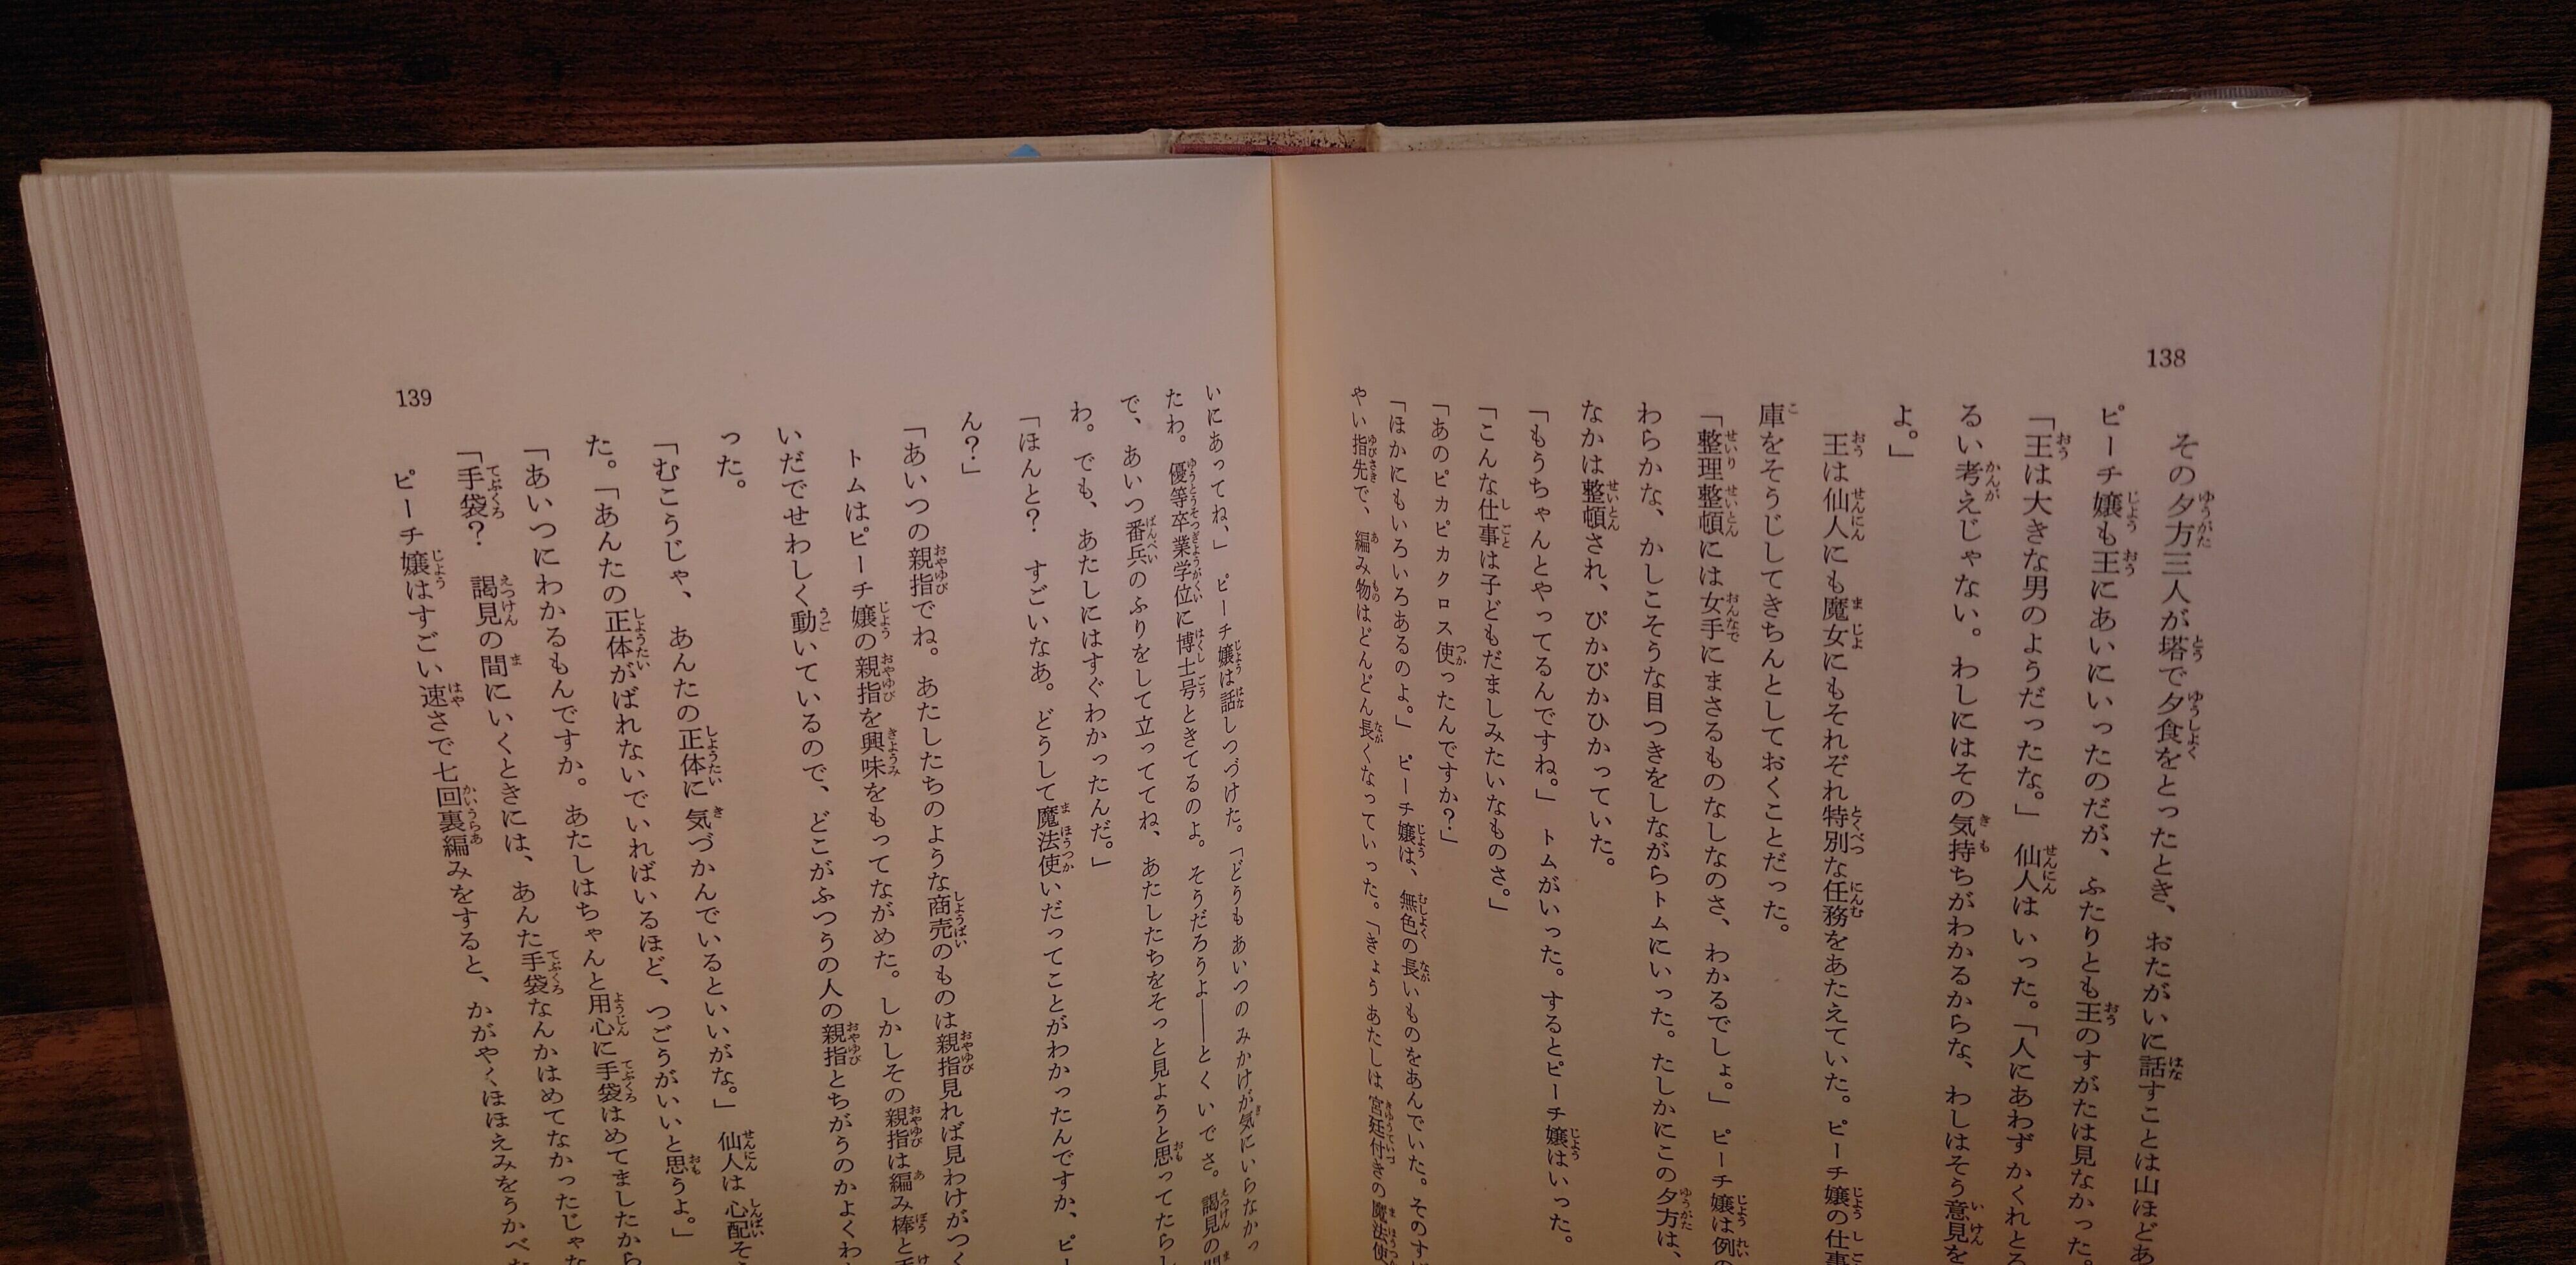 138
その夕方三人が塔で夕食をとったとき、おたがいに話すことは山ほどあ
ピーチ嬢も王にあいにいったのだが、ふたりとも王のすがたは見なかった。
「王は大きな男のようだったな。」仙人はいった。「人にあわずかくれとる
るい考えじゃない。わしにはその気持ちがわかるからな、わしはそう意見を
よ。」
王は仙人にも魔女にもそれぞれ特別な任務をあたえていた。ピーチ嬢の仕事
庫をそうじしてきちんとしておくことだった。
「整理整頓には女手にまさるものなしなのさ、わかるでしょ。」ピーチ嬢は例の
わらかな、かしこそうな目つきをしながらトムにいった。たしかにこの夕方は、
なかは整頓され、ぴかぴかひかっていた。
「もうちゃんとやってるんですね。」トムがいった。するとピーチ嬢はいった。
「こんな仕事は子どもだましみたいなものさ。」
「あのピカピカクロス使ったんですか？」
「ほかにもいろいろあるのよ。」ピーチ嬢は、無色の長いものをあんでいた。そのす
やい指先で、編み物はどんどん長くなっていった。「きょうあたしは宮廷付きの魔法使
いにあってね、」ピーチ嬢は話しつづけた。「どうもあいつのみかけが気にいらなかっ
たわ。優等卒業学位に博士号ときてるのよ。そうだろうよ――とくいでさ。謁見の間
で、あいつ番兵のふりをして立っててね、あたしたちをそっと見ようと思ってたらし
わ。でも、あたしにはすぐわかったんだ。」
「ほんと？　すごいなあ。どうして魔法使いだってことがわかったんですか、ピー
ん？」
「あいつの親指でね。あたしたちのような商売のものは親指見れば見わけがつく
トムはピーチ嬢の親指を興味をもってながめた。しかしその親指は編み棒と毛
いだでせわしく動いているので、どこがふつうの人の親指とちがうのかよくわ
った。
「むこうじゃ、あんたの正体に気づかんでいるといいがな。」仙人は心配そ
た。「あんたの正体がばれないでいればいるほど、つごうがいいと思うよ。」
「あいつにわかるもんですか。あたしはちゃんと用心に手袋はめてましたから
「手袋？　謁見の間にいくときには、あんた手袋なんかはめてなかったじゃな
ピーチ嬢はすごい速さで七回裏編みをすると、かがやくほほえみをうかべ
139